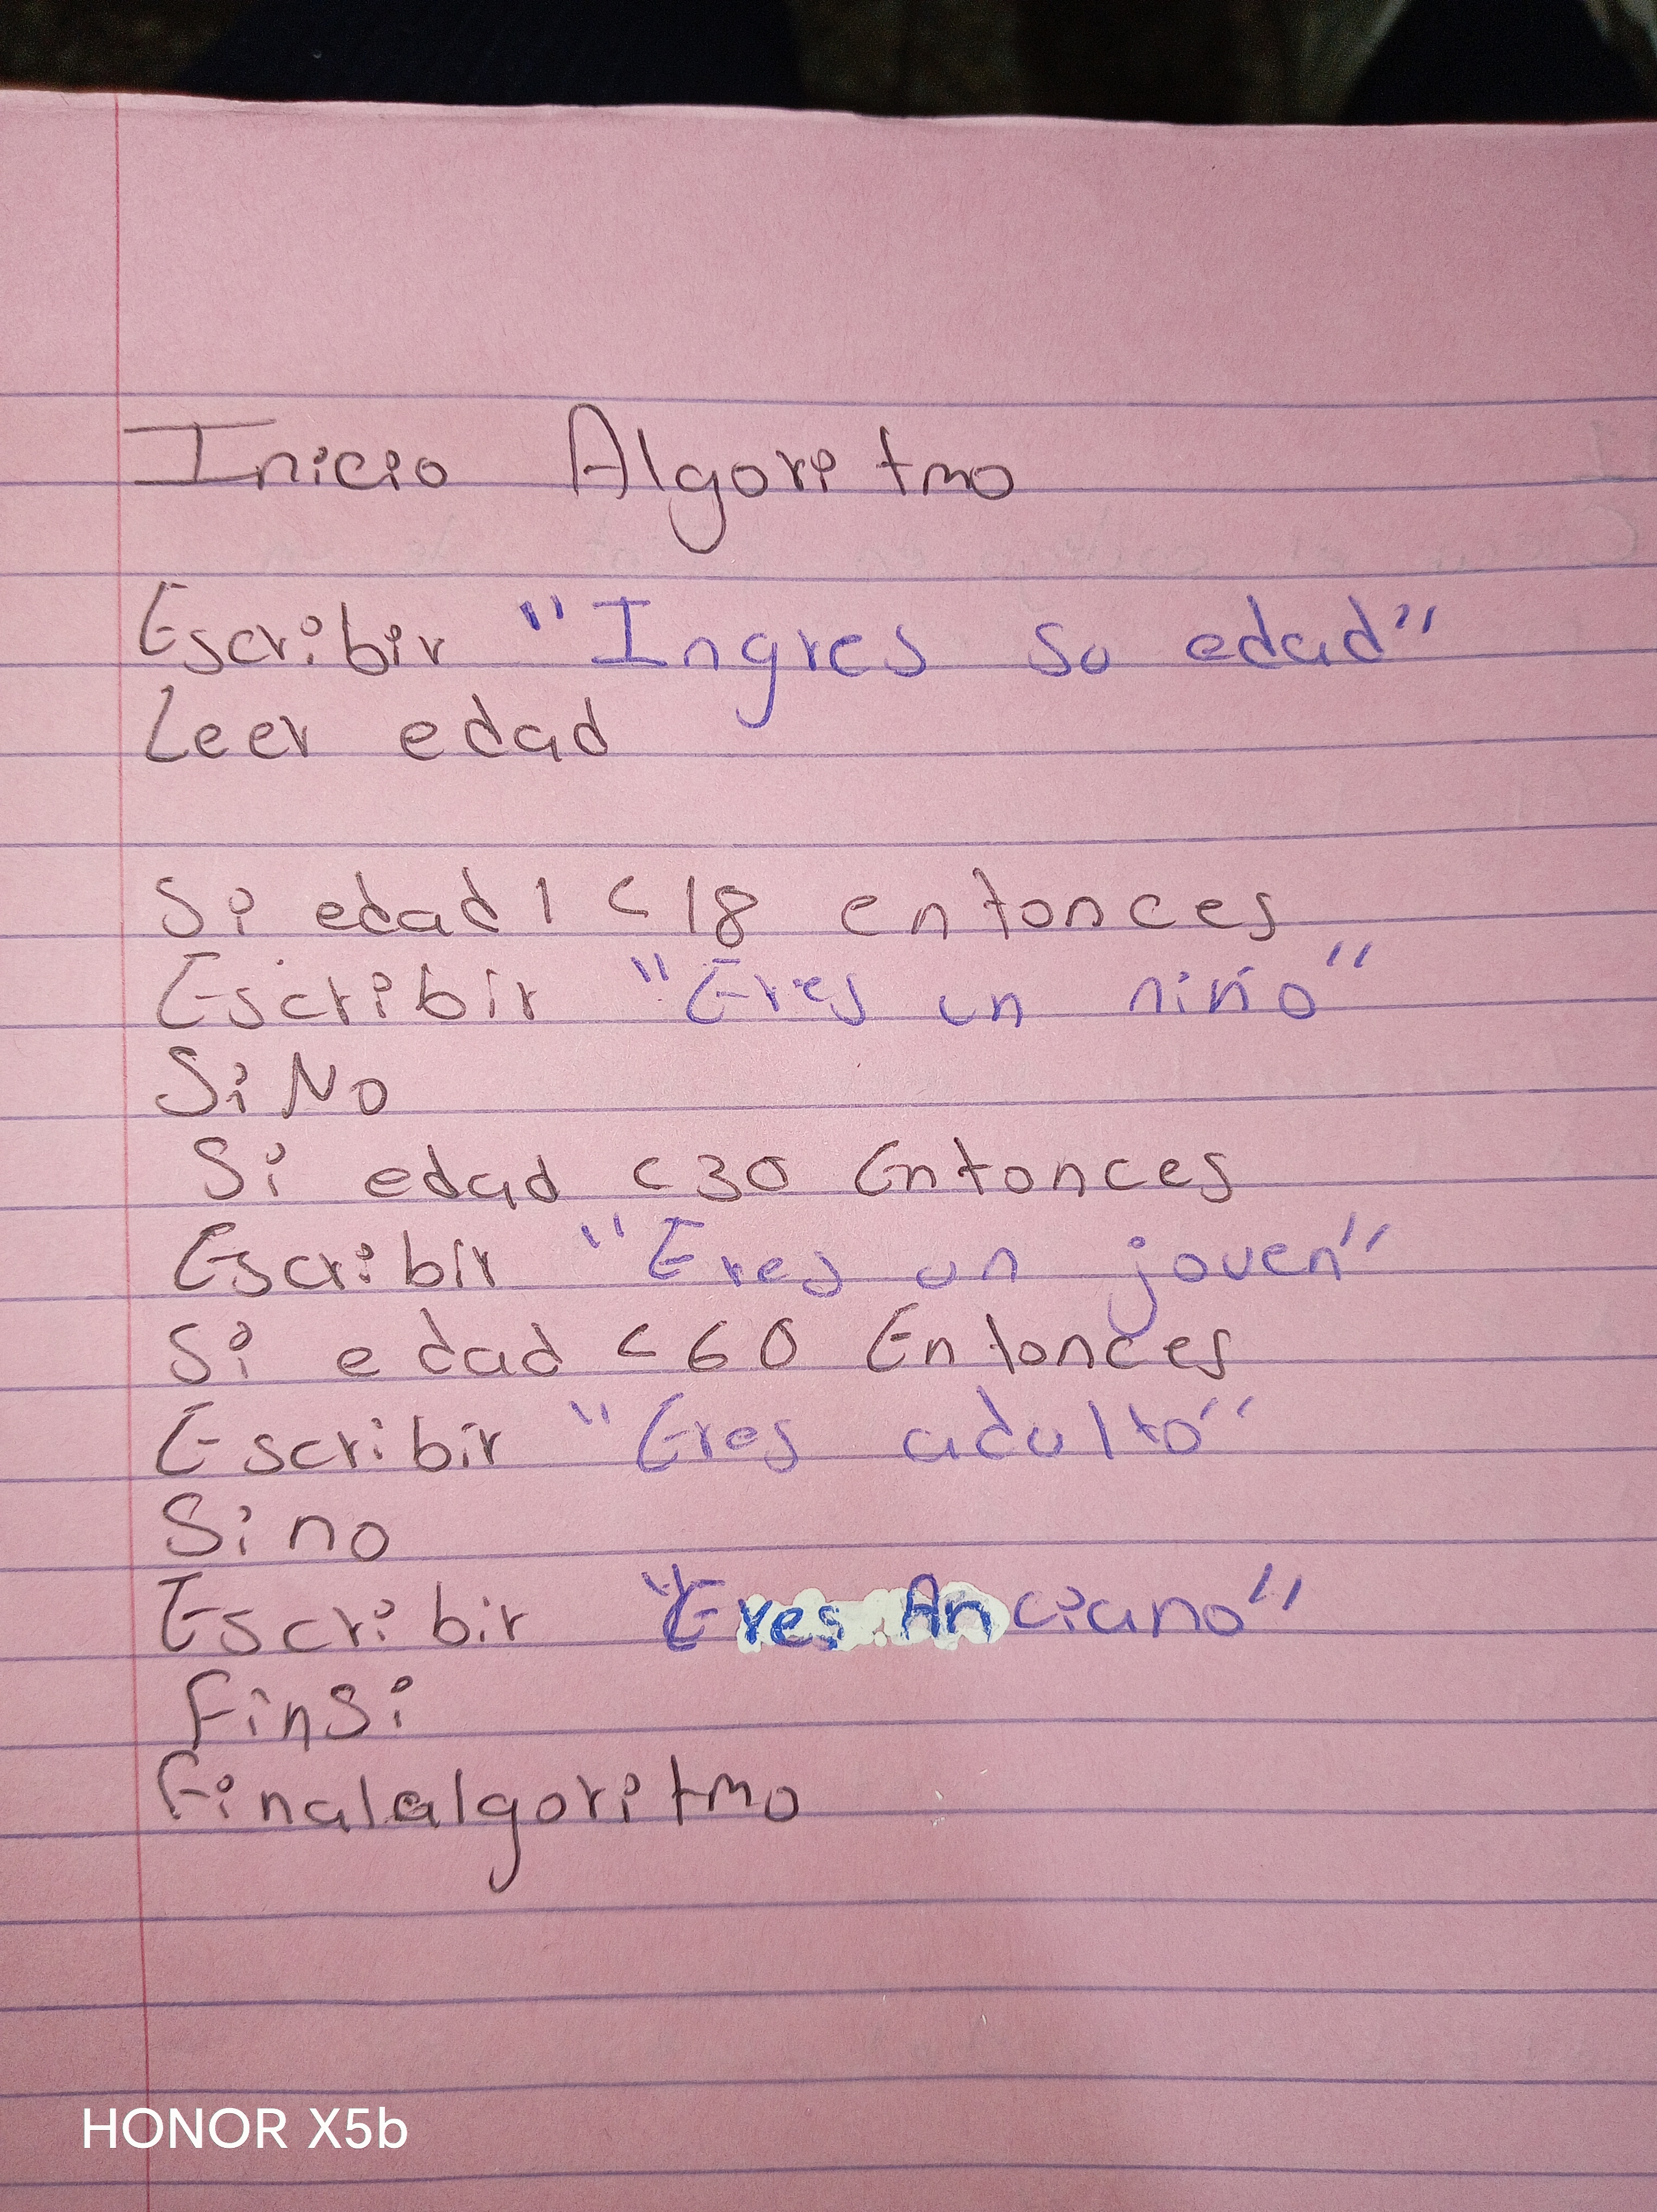 Inicio Algoritmo
Escribir "Ingres su edad"
Leer edad
Si edad 1 < 18 entonces
Escribir "Eres un niño"
Si No
Si edad < 30 Entonces
Escribir "Eres un joven"
Si edad < 60 Entonces
Escribir "Eres adulto"
Si no
Escribir "Eres Anciano"
FinSi
Finalalgoritmo
HONOR X5b